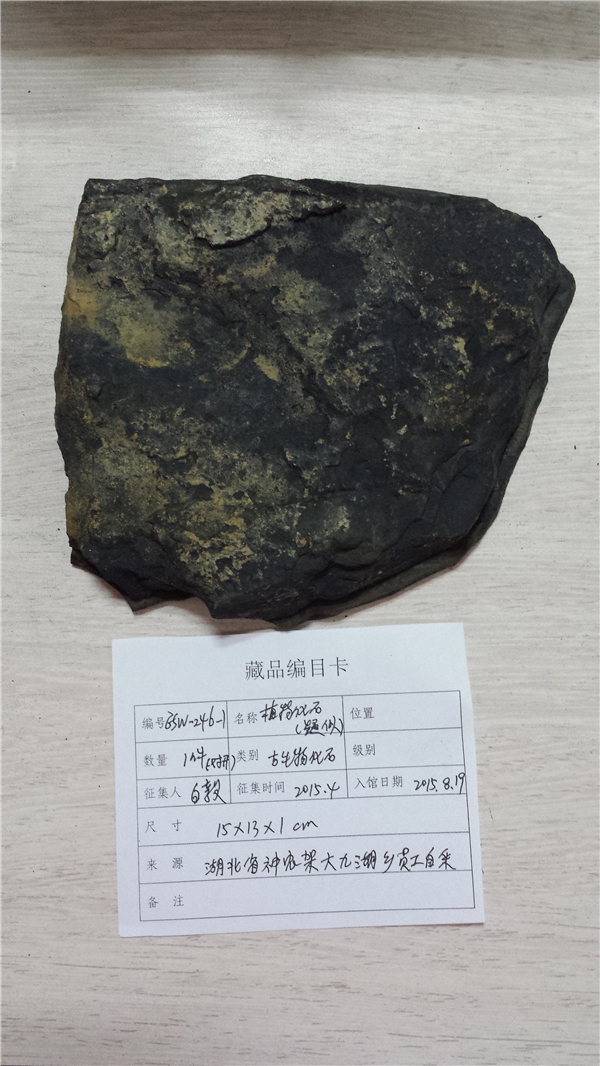 藏品编目卡
编号 GSW-246-1 名称 植物化石(疑似) 位置
数量 1件 类别 古生物化石 级别
征集人 征集时间 2015.4 入馆日期 2015.8.19
尺 寸 15×13×1cm
来 源 湖北省神农架大九湖乡员工自采
备 注